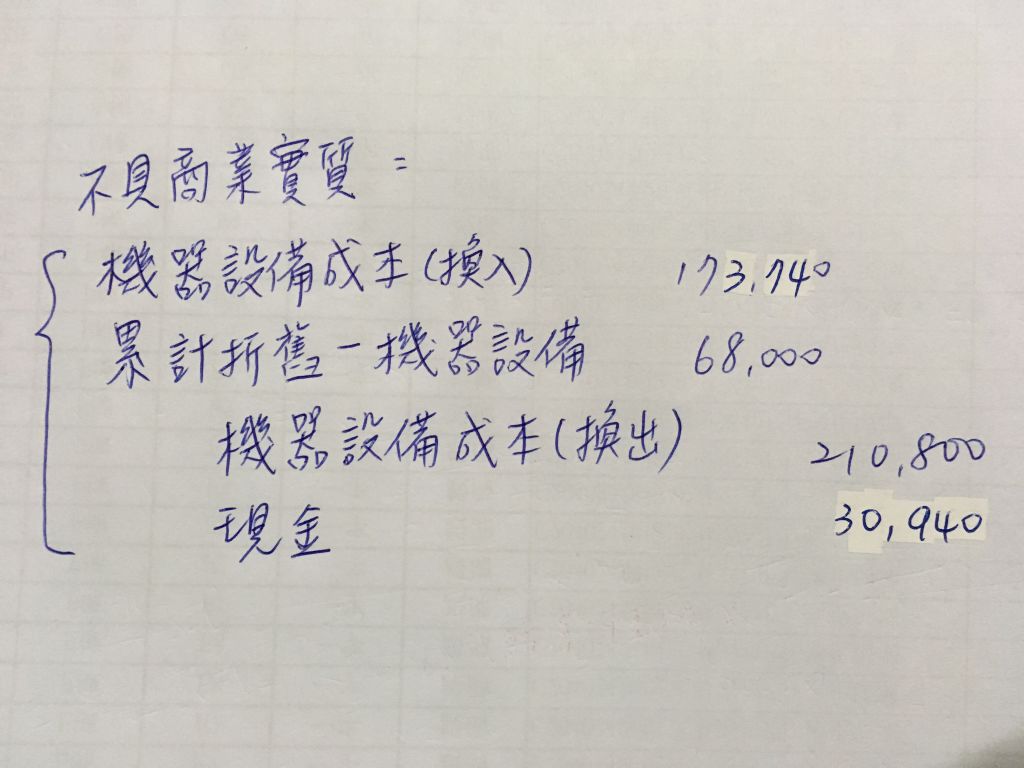 不具商業實質：
機器設備成本(換入) 173,740
累計折舊－機器設備 68,000
機器設備成本(換出) 210,800
現金 30,940